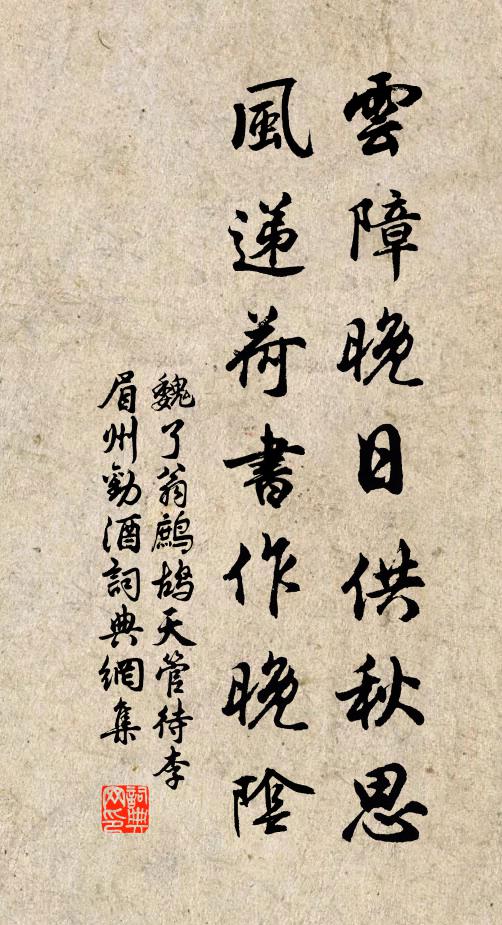 雲障晚日供秋思
風遞荷書作晚陰
魏了翁鷓鴣天管待李
眉州勸酒詞典網集
詞典
网印